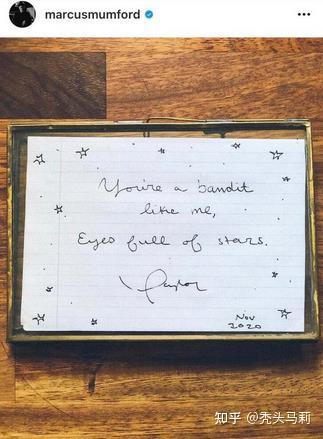 marcusmumford
You're a bandit
like me,
Eyes full of stars.
Taylor
Nov
2020
知乎 @秃头马莉